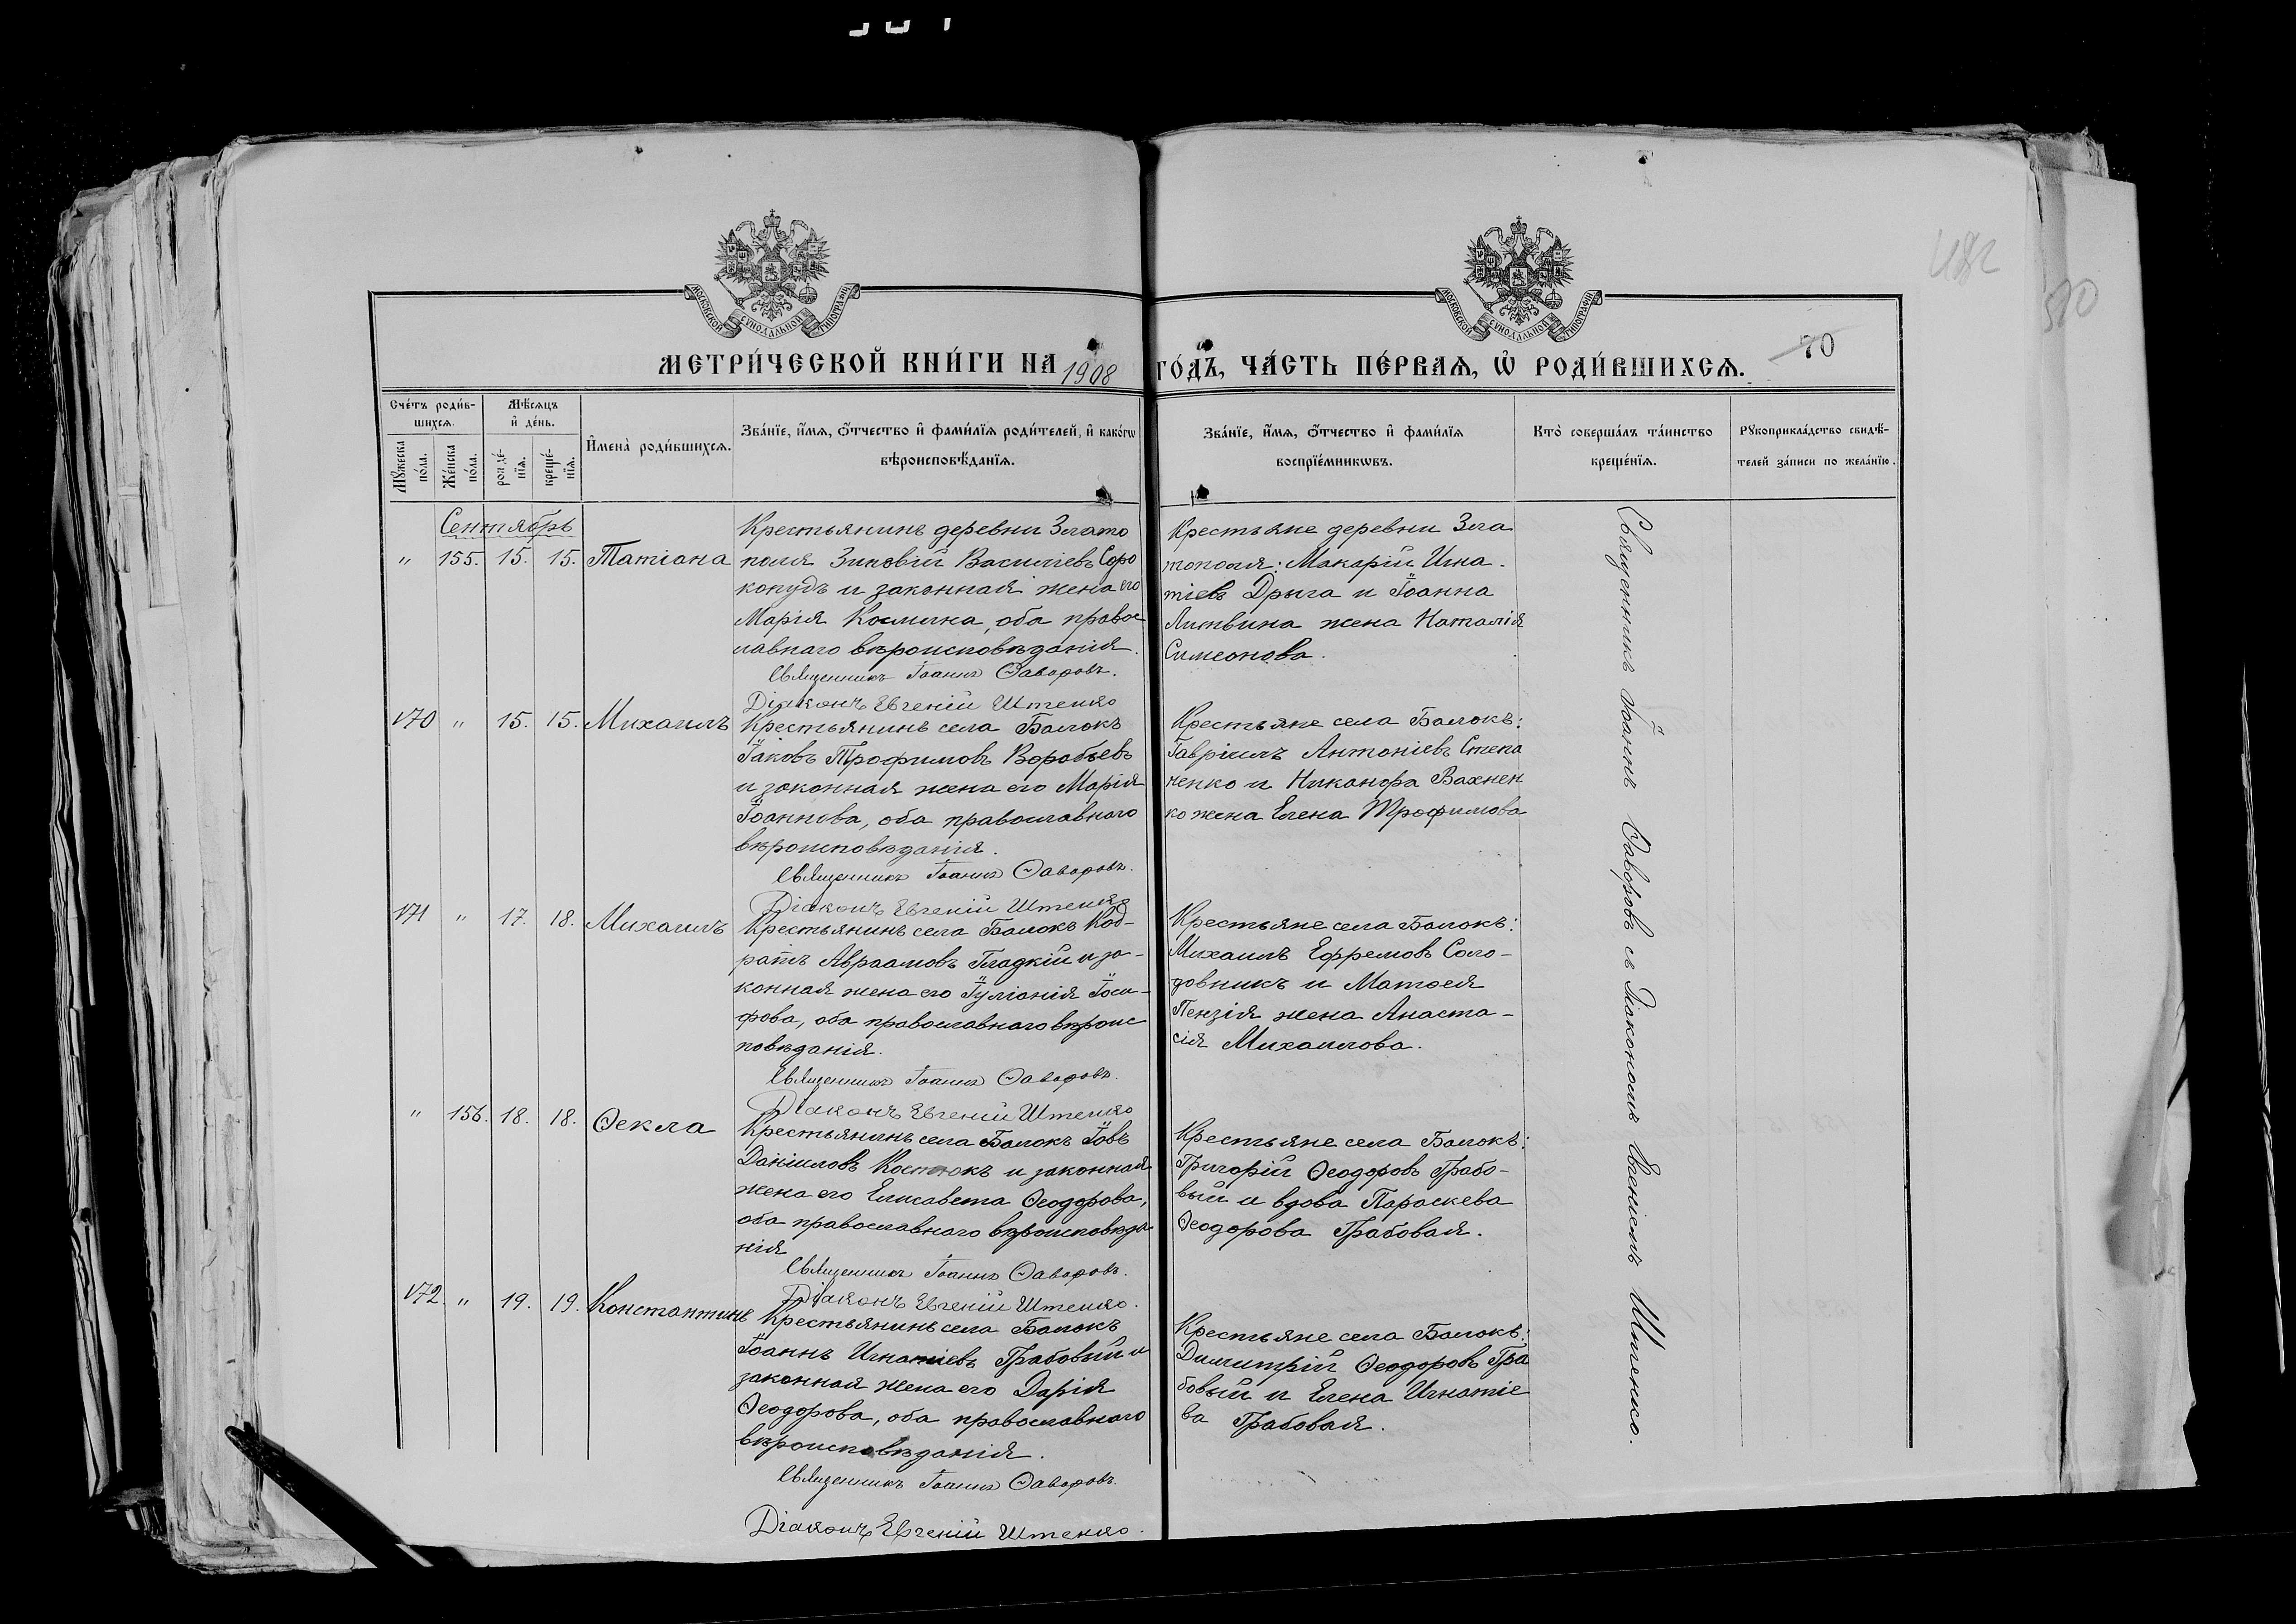 МОСКОВСКОЙ СУНОДАЛЬНОЙ ТИПОГРАФІИ
МОСКОВСКОЙ СУНОДАЛЬНОЙ ТИПОГРАФІИ
70
МЕТРИ́ЧЕСКОЙ КНИ́ГИ НА 1908 ГО́ДЪ, ЧА́СТЬ ПЕ́РВАѦ, Ѡ҆ РОДИ́ВШИХСѦ.
Сче́тъ роди́в-
шихсѧ.
Мꙋ́жеска по́ла.
Же́нска по́ла.
Мѣ́сѧцъ
и҆ де́нь.
рожде́-
нїѧ.
креще́-
нїѧ.
И҆мена̀ роди́вшихсѧ.
Зва́нїе, и҆́мѧ, ѻ҆́тчество и҆ фами́лїѧ роди́телей, и҆ како́гѡ
вѣроисповѣ́данїѧ.
Зва́нїе, и҆́мѧ, ѻ҆́тчество и҆ фами́лїѧ
воспрїе́мникѡвъ.
Кто̀ соверша́лъ та́инство
креще́нїѧ.
Рꙋкоприкла́дство свидѣ́-
телей за́писи по жела́нїю.
Сентябрь
" 155. 15. 15. Татіана
Крестьянинъ деревни Злато
поля Зиновій Василіевъ Соро
копудъ и законная жена его
Марія Космина, оба правос
лавнаго вѣроисповѣданія.
Священникъ Іоаннъ Ѳаворовъ.
Діаконъ Евгеній Штенко
Крестьяне деревни Зла
тополя: Макарій Игна
тіевъ Дрыга и Іоанна
Литвина жена Наталія
Симеонова.
170 " 15. 15. Михаилъ
Крестьянинъ села Балокъ
Іаковъ Трофимовъ Воробьевъ
и законная жена его Марія
Іоаннова, оба православнаго
вѣроисповѣданія.
Священникъ Іоаннъ Ѳаворовъ.
Діаконъ Евгеній Штенко
Крестьяне села Балокъ:
Гавріилъ Антоніевъ Степа
ненко и Никанора Вахнен
ко жена Елена Трофимова
171 " 17. 18. Михаилъ
Крестьянинъ села Балокъ Код-
ратъ Авраамовъ Гладкій и за-
конная жена его Іуліанія Іоси-
фова, оба православнаго вѣроис
повѣданія.
Священникъ Іоаннъ Ѳаворовъ.
Діаконъ Евгеній Штенко
Крестьяне села Балокъ:
Михаилъ Ефремовъ Соло-
довникъ и Матѳея
Пензія жена Анаста-
сія Михаилова.
" 156. 18. 18. Ѳекла
Крестьянинъ села Балокъ Іовъ
Даніиловъ Костюкъ и законная
жена его Елисавета Ѳеодорова,
оба православнаго вѣроисповѣда
нія
Священникъ Іоаннъ Ѳаворовъ.
Діаконъ Евгеній Штенко.
Крестьяне села Балокъ:
Григорій Ѳеодоровъ Грабо-
вый и вдова Параскева
Ѳеодорова Грабовая.
172. " 19. 19. Константинъ
Крестьянинъ села Балокъ
Іоаннъ Игнатіевъ Грабовый и
законная жена его Дарія
Ѳеодорова, оба православнаго
вѣроисповѣданія.
Священникъ Іоаннъ Ѳаворовъ.
Діаконъ Евгеній Штенко.
Крестьяне села Балокъ:
Димитрій Ѳеодоровъ Гра
бовый и Елена Игнатіе
ва Грабовая.
Священникъ Іоаннъ Ѳаворовъ съ Діакономъ Евгеніемъ Штенко.